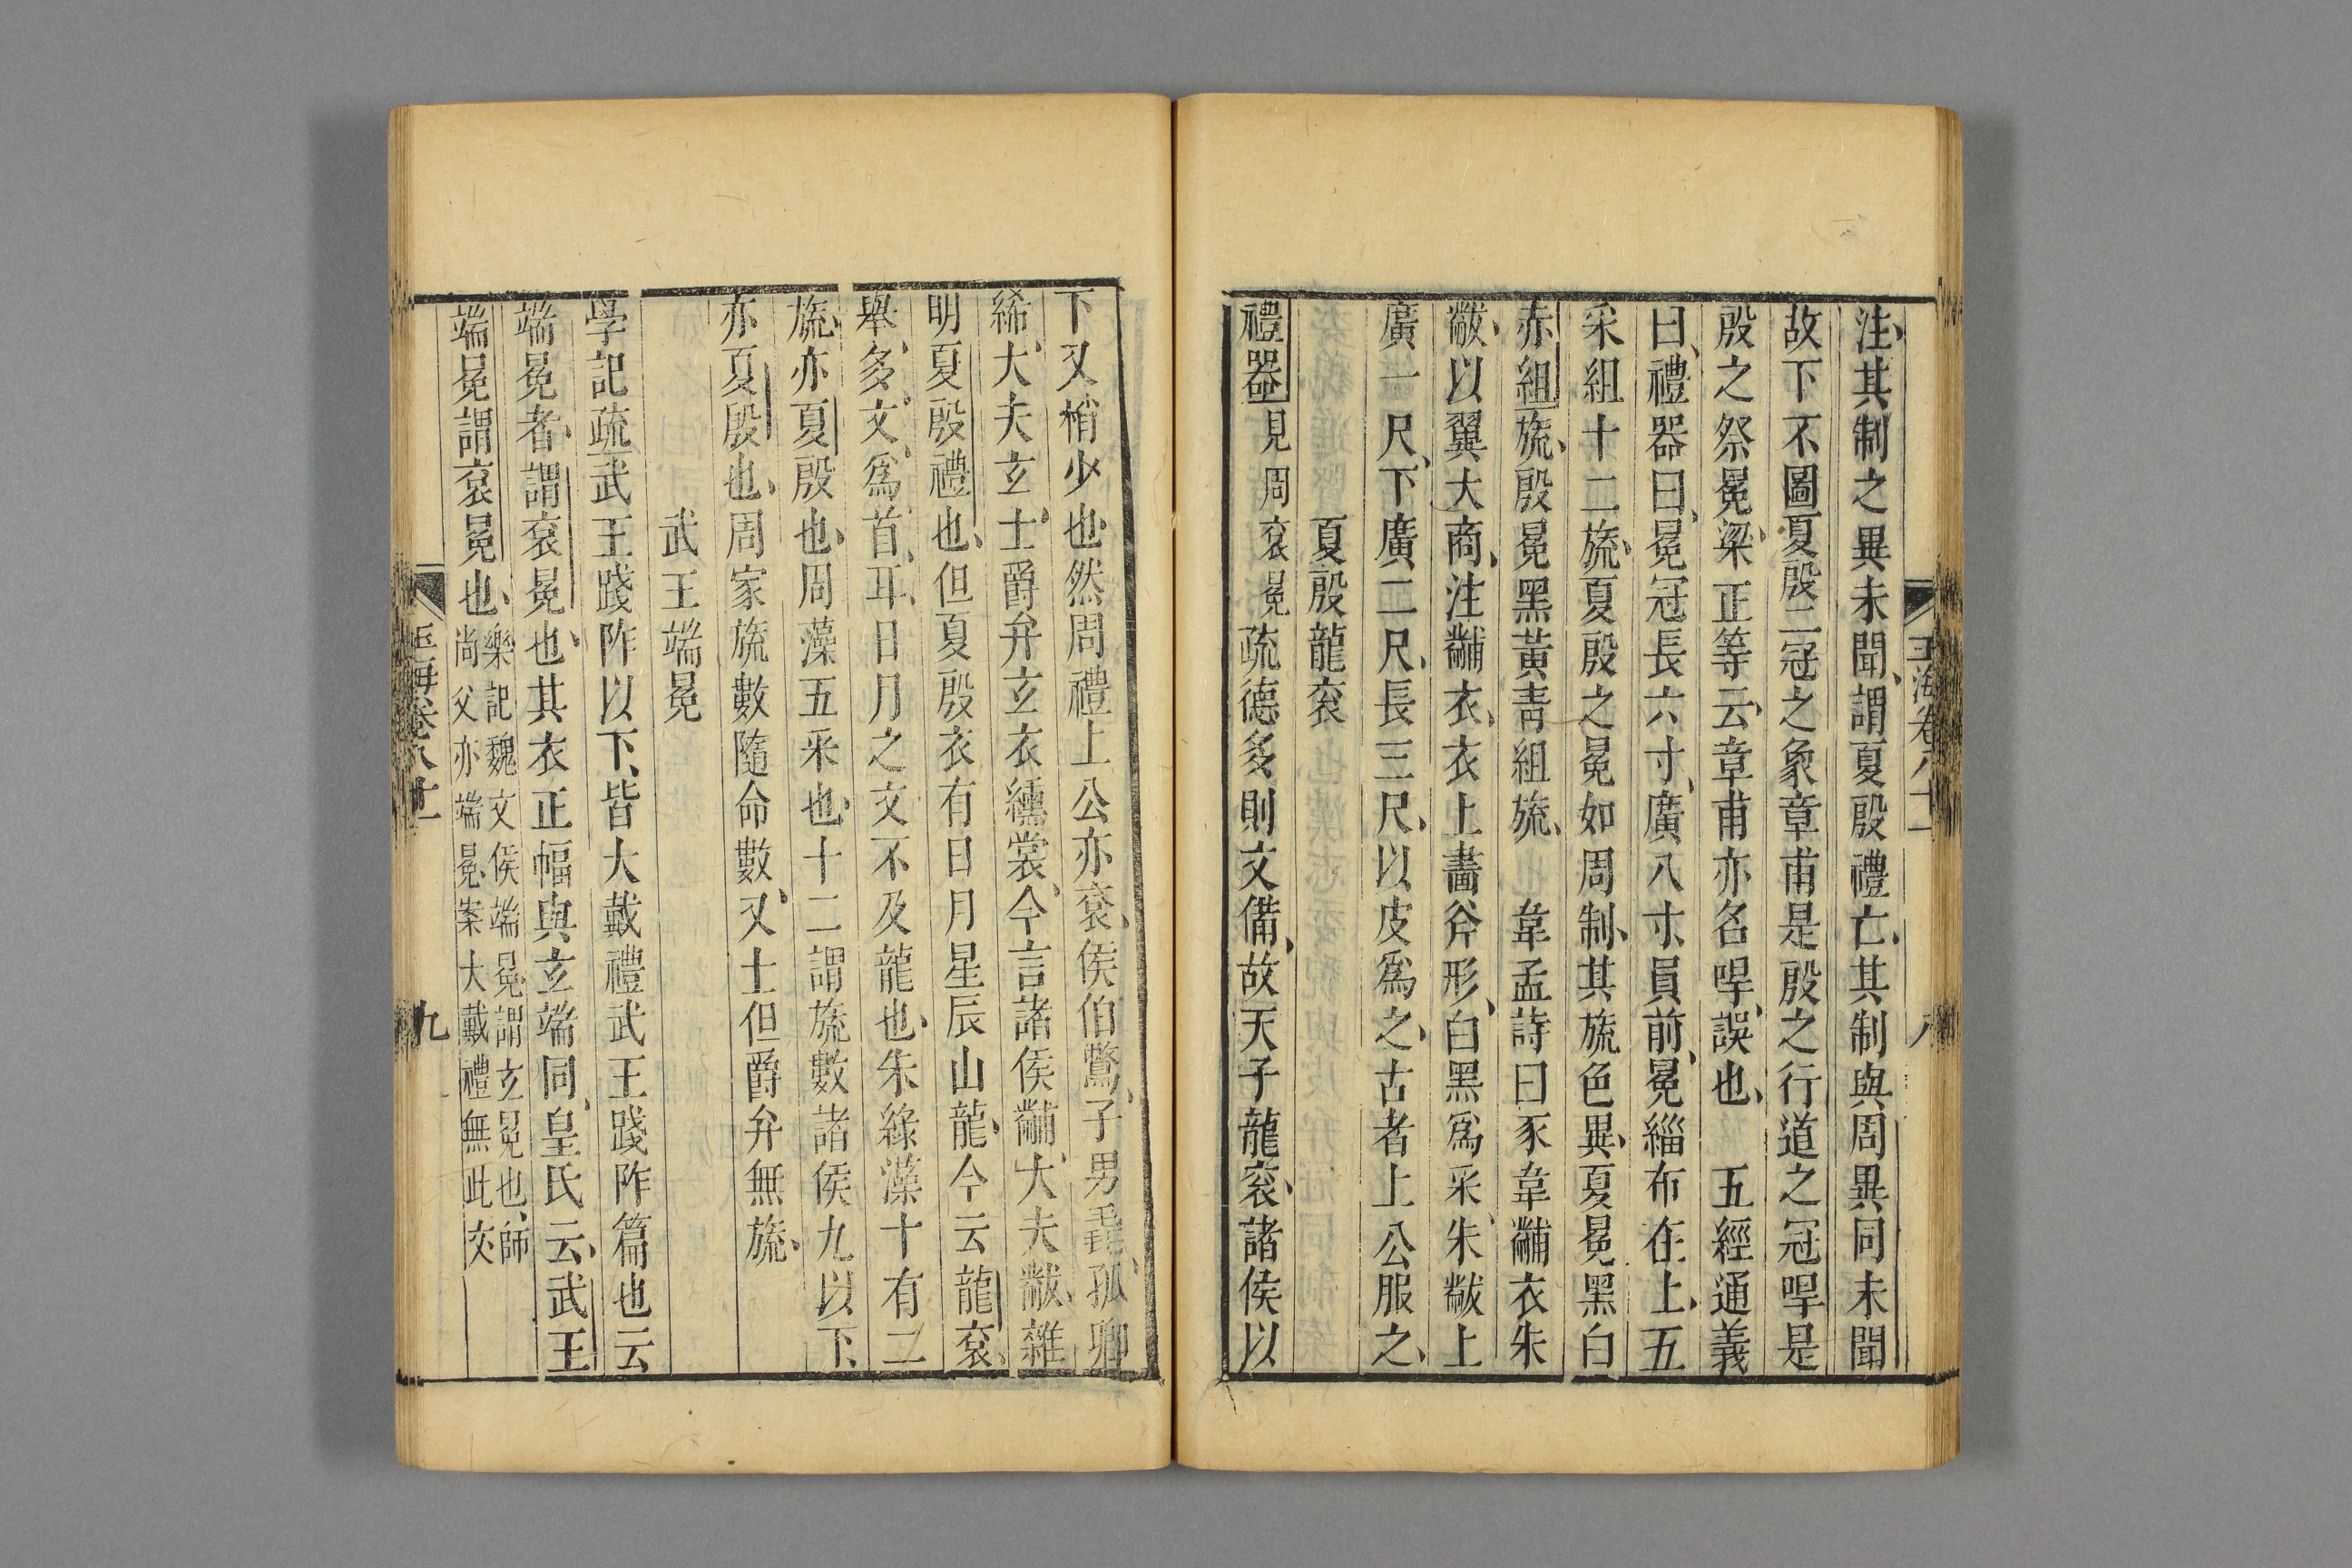 注其制之異未聞謂夏殷禮亡其制與周異同未聞
故下不圖夏殷二冠之象章甫是殷之行道之冠冔是
殷之祭冕梁正等云章甫亦名冔誤也　五經通義
曰禮器曰冕冠長六寸廣八寸員前冕緇布在上五
采組十二旒夏殷之冕如周制其旒色異夏冕黑白
赤組旒殷冕黑黃青組旒　韋孟詩曰豕韋黼衣朱
黻以翼大商注黼衣衣上畫斧形白黑為采朱黻上
廣一尺下廣二尺長三尺以皮為之古者上公服之
夏殷龍衮
禮器見周衮冕疏德多則文備故天子龍衮諸侯以
玉海卷八十一　八
下又稍少也然周禮上公亦衮侯伯鷩子男毳孤卿
絺大夫玄士爵弁玄衣纁裳今言諸侯黼大夫黻雜
明夏殷禮也但夏殷衣有日月星辰山龍今云龍衮
舉多文為首耳日月之文不及龍也朱綠藻十有二
旒亦夏殷也周藻五采也十二謂旒數諸侯九以下
亦夏殷也周家旒數隨命數又士但爵弁無旒
武王端冕
學記疏武王踐阼以下皆大戴禮武王踐阼篇也云
端冕者謂衮冕也其衣正幅與玄端同皇氏云武王
端冕謂衮冕也樂記魏文侯端冕謂玄冕也師
尚父亦端冕案大戴禮無此文
玉海卷八十一　九